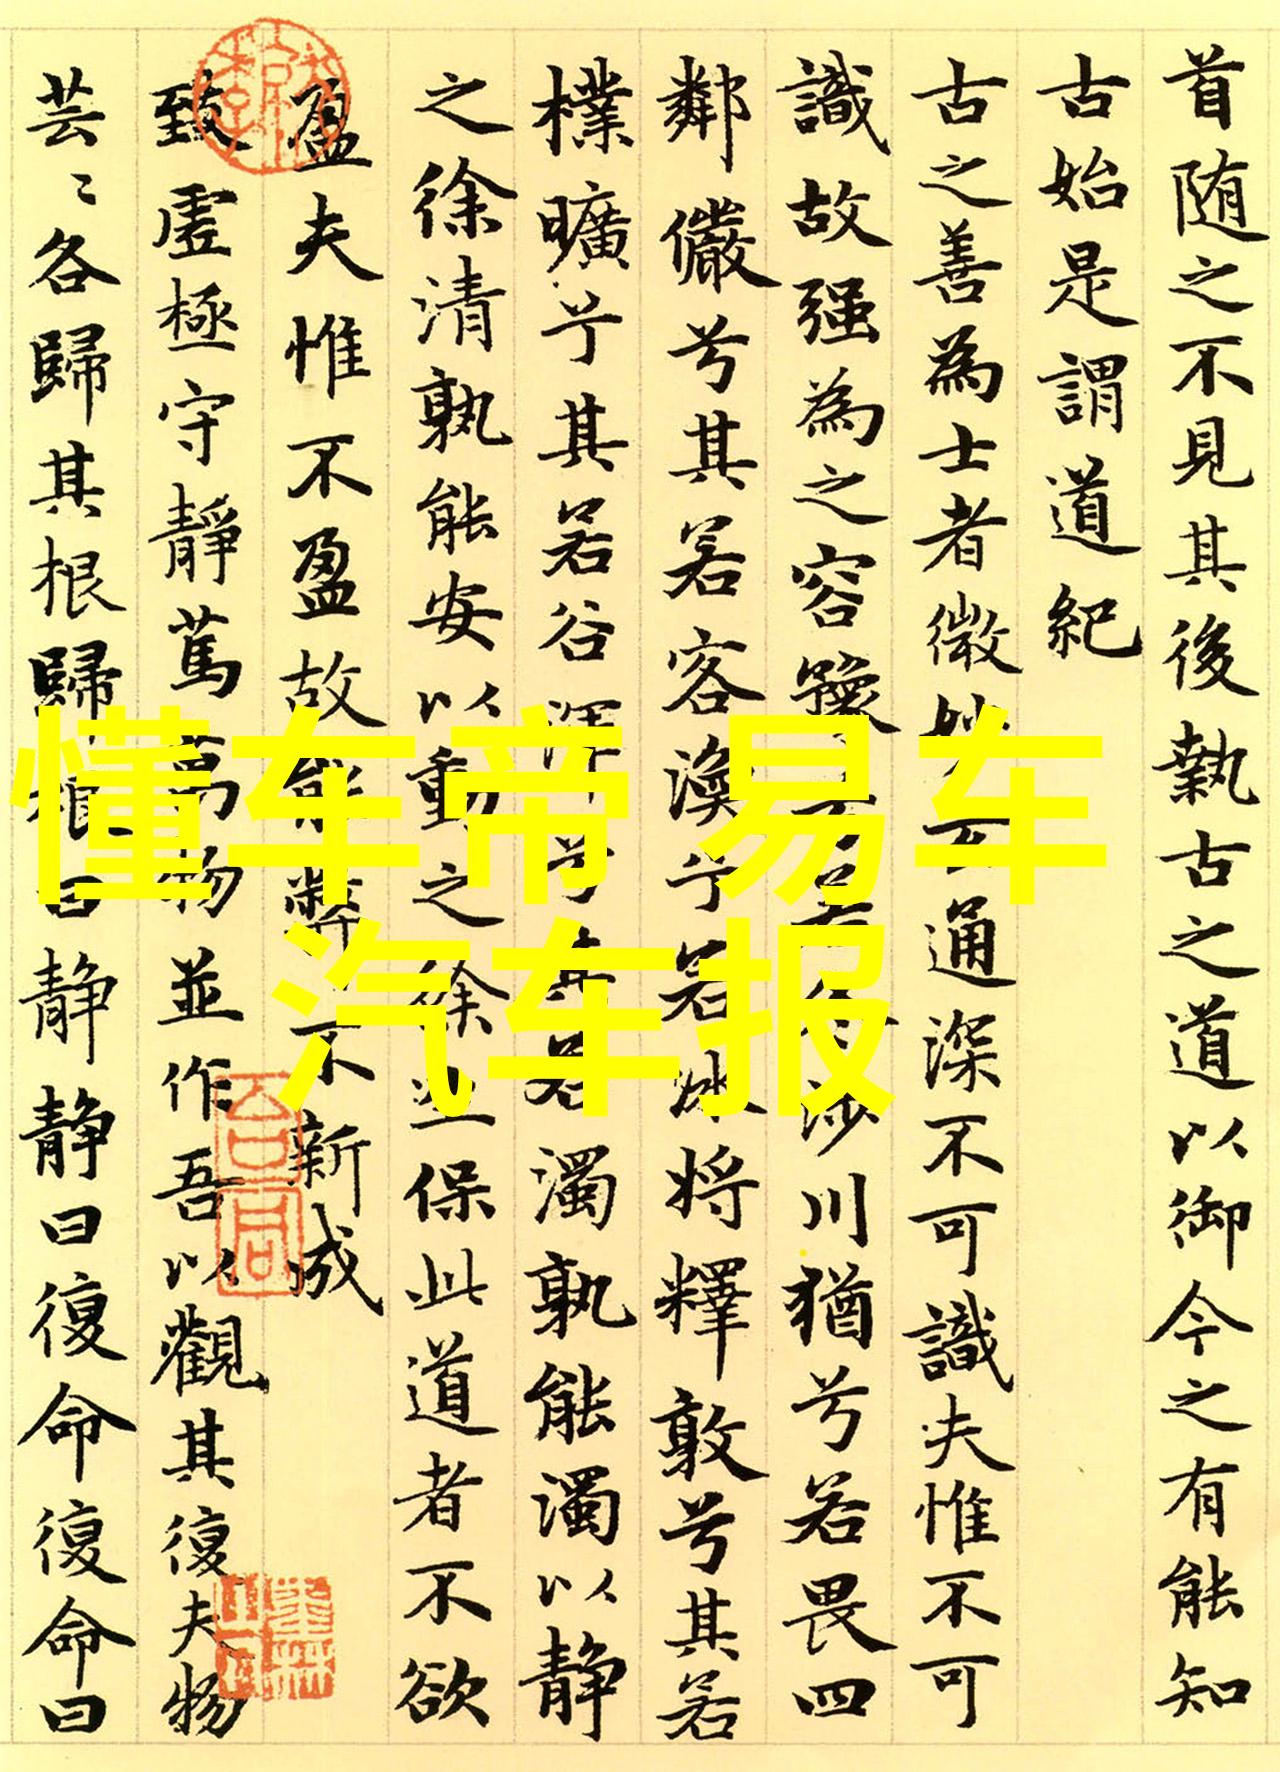 首随之不見其後執古之道以御今之有能知
古始是謂道紀
古之善為士者微妙玄通深不可識夫惟不可
識故强為之容豫兮若冬涉川猶兮若畏四
鄰儼兮其若客渙兮若冰將釋敦兮其若
樸曠兮其若谷渾兮其若濁孰能濁以静
之徐清孰能安以動之徐生保此道者不欲
盈夫惟不盈故能弊不新成
致虛極守靜篤萬物並作吾以觀其復夫物
芸〻各歸其根歸根曰静静曰復命復命曰
懂车帝 易车
汽车报